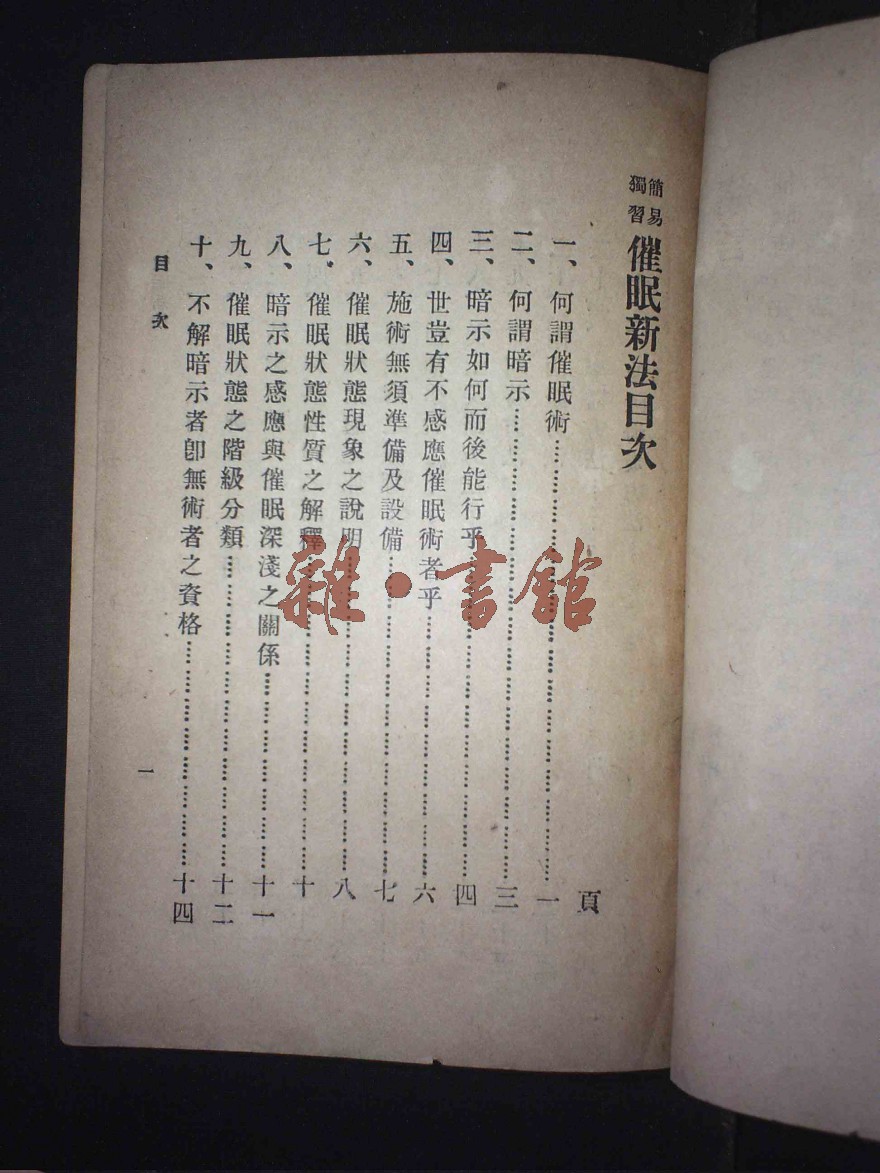 簡易
獨習
催眠新法目次
頁
一、何謂催眠術……一
二、何謂暗示……三
三、暗示如何而後能行乎……四
四、世豈有不感應催眠術者乎……六
五、施術無須準備及設備……七
六、催眠狀態現象之說明……八
七、催眠狀態性質之解釋……十
八、暗示之感應與催眠深淺之關係……十一
九、催眠狀態之階級分類……十二
十、不解暗示者卽無術者之資格……十四
目次
一
雜·書館